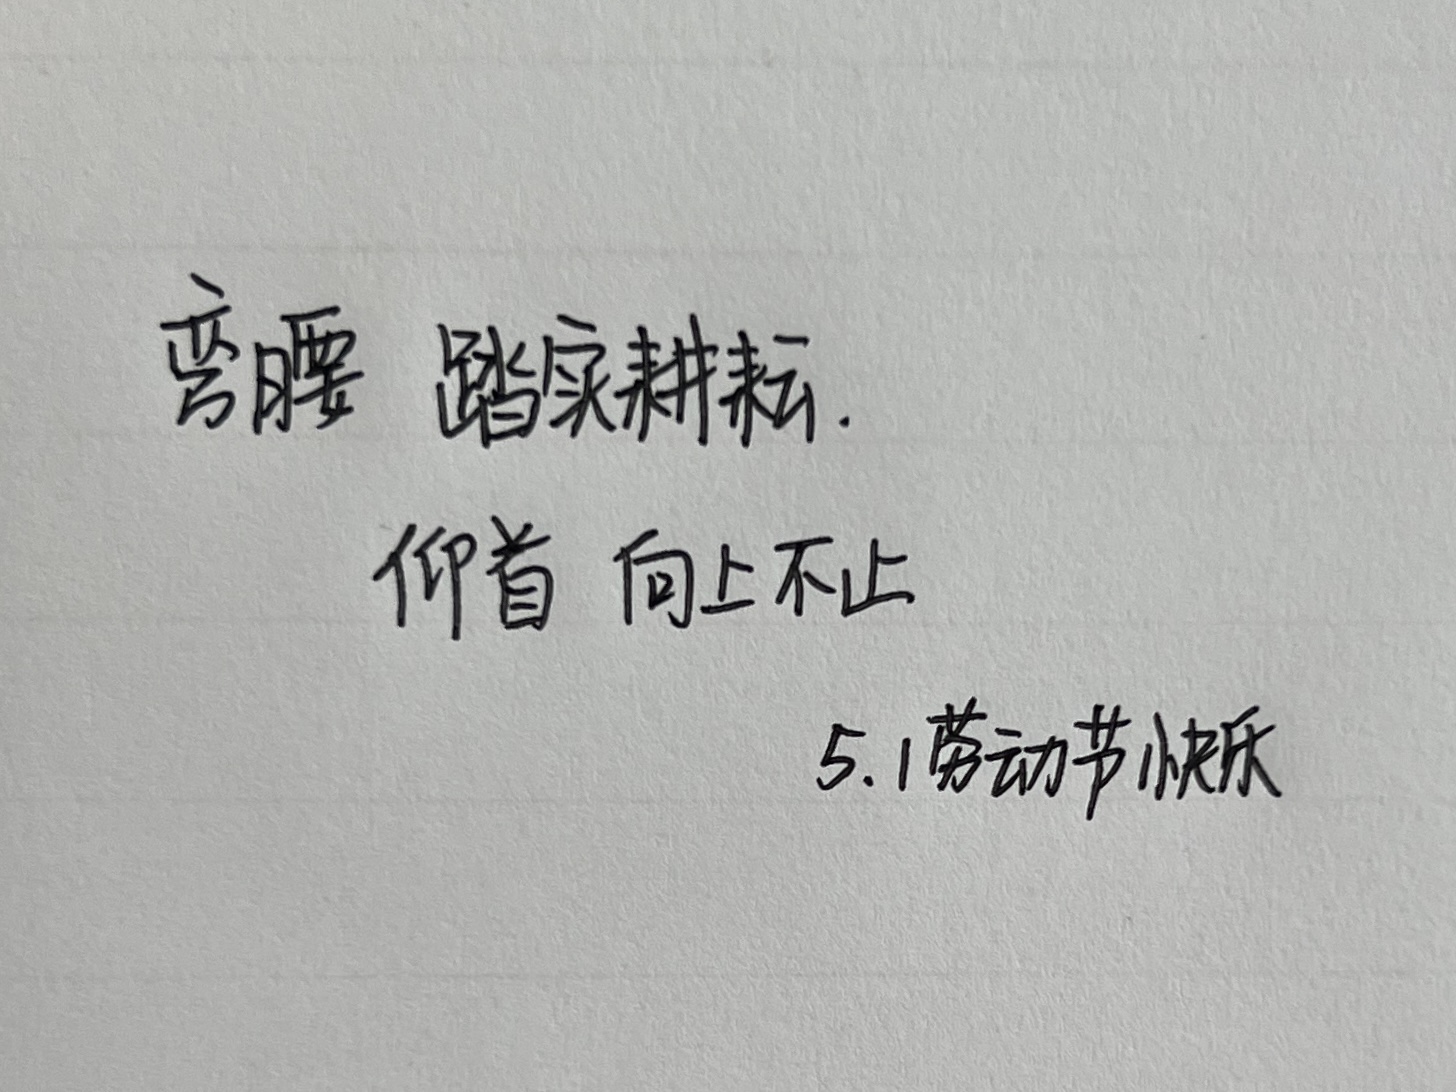 弯腰 踏实耕耘.
仰首 向上不止
5.1劳动节快乐